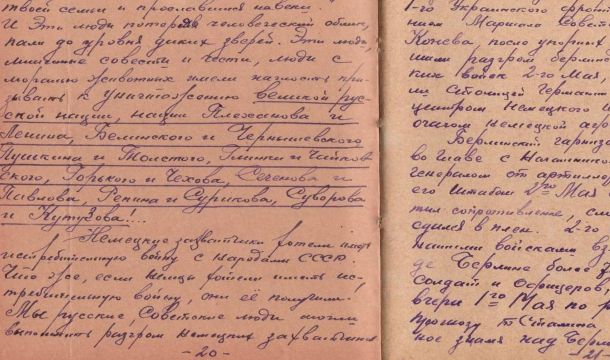 твоей семьи и прославился навеки.
И Эти люди потеряв человеческий облик,
пали до уровня диких зверей. Эти люди,
лишённые совести и чести, люди с
моралью животных имели наглость при-
зывать к уничтожению великой рус-
ской нации, нации Плеханова и
Ленина, Белинского и Чернышевского,
Пушкина и Толстого, Глинки и Чайков
ского, Горького и Чехова, Сеченова и
Павлова, Репина и Сурикова, Суворова
и Кутузова!...
Немецкие захватчики хотели иметь
истребительную войну с народами СССР.
Что же, если немцы хотели иметь ис-
требительную войну, они её получили.
Мы русские Советские люди смогли
выполнить разгром немецких захватчиков
- 20 -
1-го Украинского фронт
ном Маршала Совет
Конева, после упорных
шили разгром берлин
ких войск 2-го Мая,
ли столицей Германи
центром немецкого и
очагом немецкой агр
Берлинский гарниз
во главе с Начальнико
генералом от артиллер
его штабом 2го Мая
тил сопротивление, сло
сдался в плен. 2-го
нашими войсками вз
де Берлине более
солдат и офицеров
вчери 1го Мая по р
прогнозу т. Сталина
ное знамя над Берл
- 21